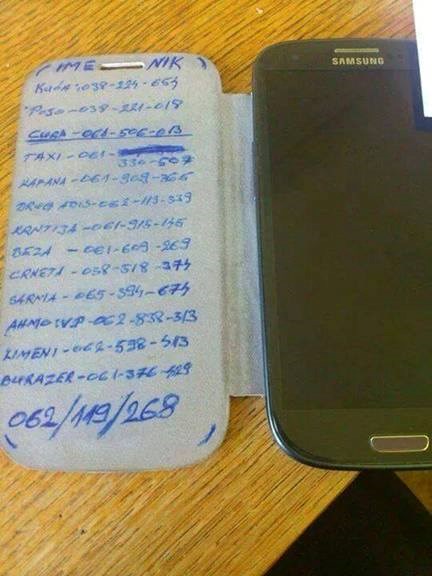 IME NIK
KUĆA: 038-224-654
POSO-038-221-018
CURA-061-506-013
TAXI-061-
330-507
KAFANA-061-909-366
DRUGI ADIS-062-113-339
KANTIJA-061-915-145
BEZA-061-609-269
CRNETA-038-518-374
SARMA-065-394-674
AHMO:VIP-062-838-313
LIMENI-062-598-413
BURAZER-061-376-429
062/119/268
SAMSUNG